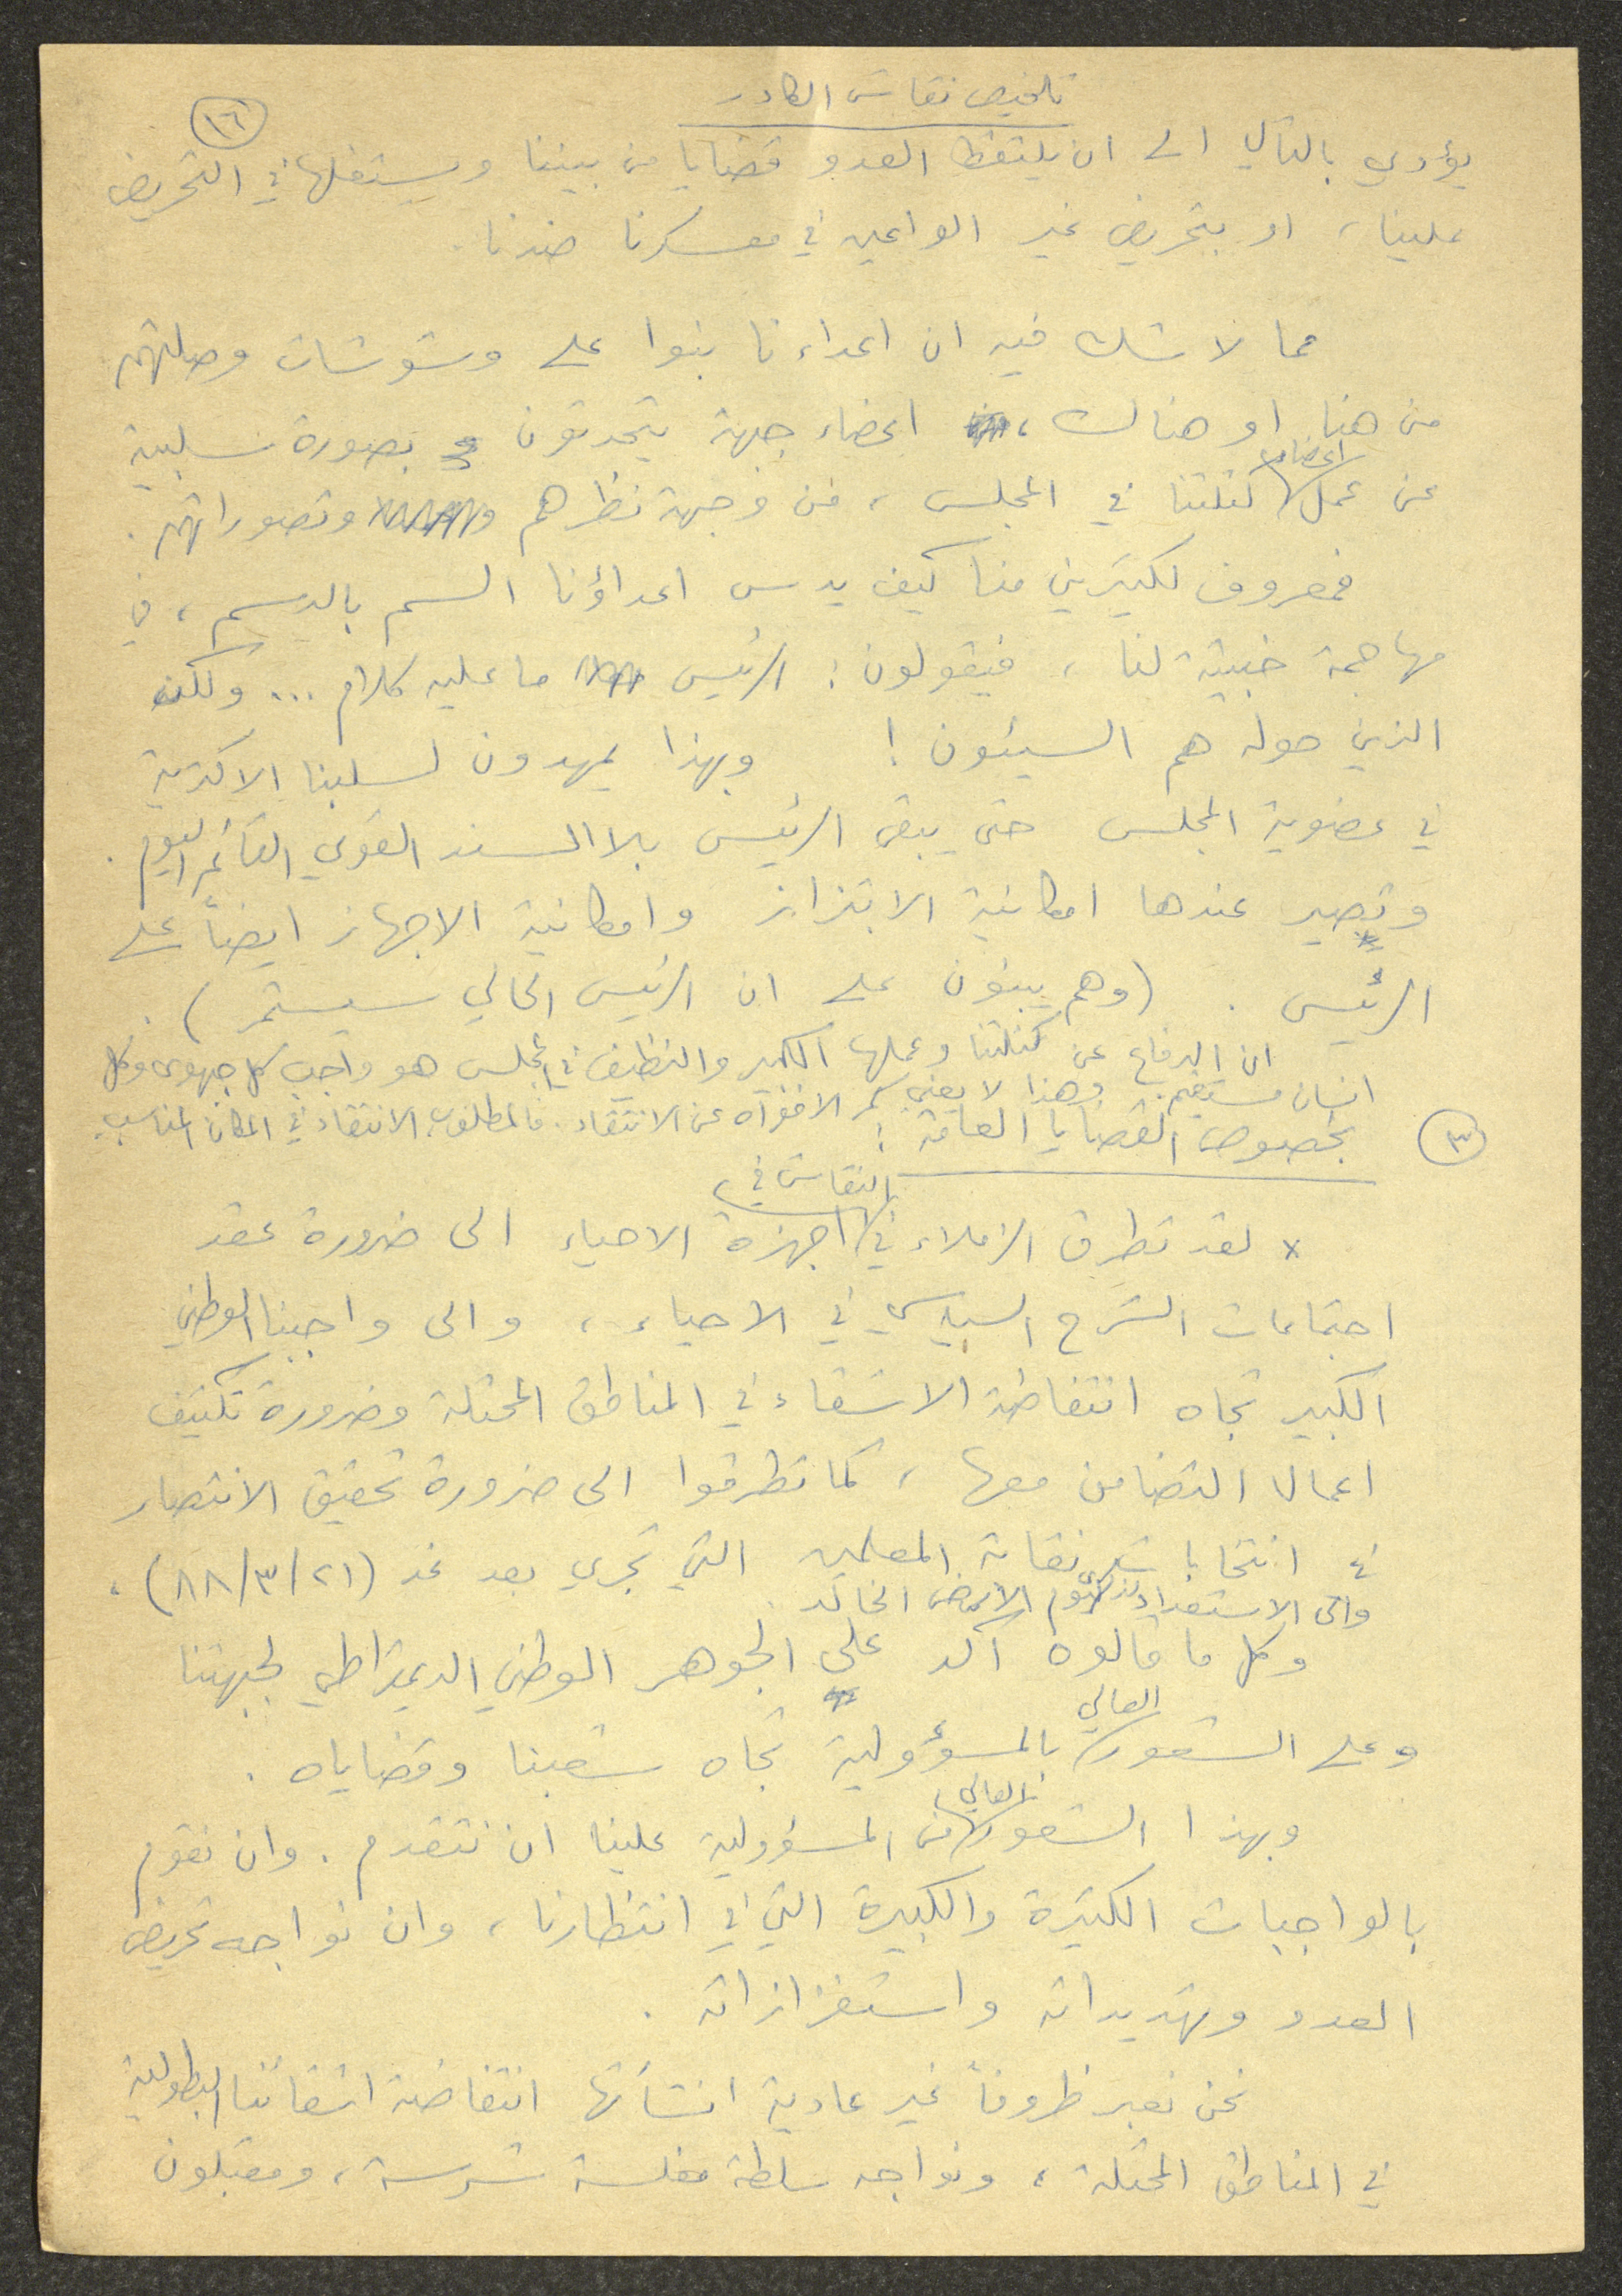 تلخيص نقاش الكادر
١٦
يؤدي بالتالي الى ان يلتقط العدو قضايا من بيننا ويستغلها في التحريض
علينا، او بتحريض غير الواعين في معسكرنا ضدنا.
مما لا شك فيه ان اعداءنا بنوا على وشوشات وصلتهم
من هنا او هناك، اعضاء جبهة يتحدثون بصورة سلبية
عن عمل اعضاء كتلتنا في المجلس، من وجهة نظرهم وتصوراتهم.
فمعروف لكثيرين منا كيف يدس اعداؤنا السم بالدسم، في
مهاجمة خبيثة لنا، فيقولون: الرئيس ما عليه كلام ... ولكن
الذين حوله هم السيئون! وبهذا يمهدون لسلبنا الاكثرية
في عضوية المجلس حتى يبقى الرئيس بلا السند القوي القائم اليوم.
وتصير عندها امكانية الابتزاز وامكانية الاجهاز ايضاً على
الرئيس. (وهم يبنون على ان الرئيس الحالي سيستمر).
ان الدفاع عن كتلتنا وعملها الكبير والنظيف في المجلس هو واجب كل جبهوي وكل
انسان مستقيم. وهذا لا يعني كم الافواه عن الانتقاد. فالمطلوب الانتقاد في المكان المناسب.
٣ بخصوص القضايا العامة:
× لقد تطرق الزملاء في النقاش في اجهزة الاحياء الى ضرورة عقد
اجتماعات الشرح السياسي في الاحياء، والى واجبنا الوطني
الكبير تجاه انتفاضة الاشقاء في المناطق المحتلة وضرورة تكثيف
اعمال التضامن معها، كما تطرقوا الى ضرورة تحقيق الانتصار
في انتخابات نقابة المعلمين التي تجري بعد غد (٨٨/٣/٢١)،
والى الاستعداد ليوم الارض الخالد.
وكل ما قالوه اكد على الجوهر الوطني الديمقراطي لجبهتنا
وعلى الشعور العالي بالمسؤولية تجاه شعبنا وقضاياه.
وبهذا الشعور العالي من المسؤولية علينا ان نتقدم. وان نقوم
بالواجبات الكثيرة والكبيرة التي في انتظارنا، وان نواجه تحريض
العدو وتهديداته واستفزازاته.
نحن نعبر ظروفاً غير عادية انشأتها انتفاضة اشقائنا البطولية
في المناطق المحتلة، ونواجه سلطة مفلسة شرسة، ومقبلون